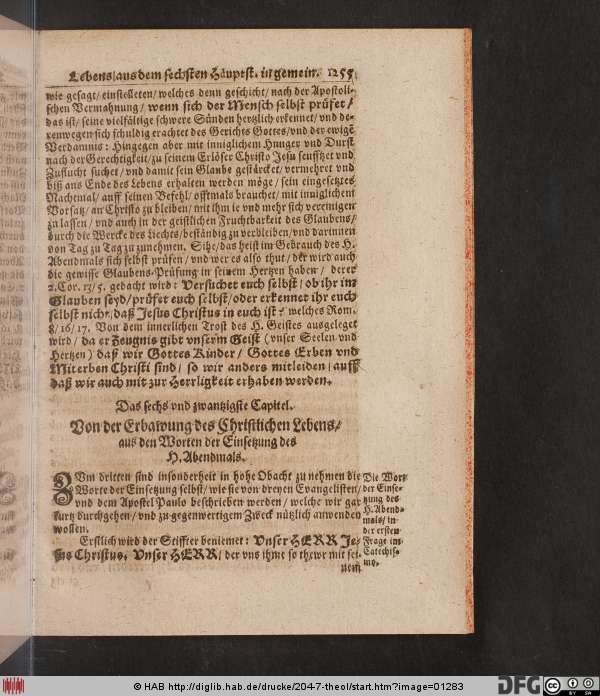 Lebens/aus dem sechsten Häuptst. in gemein. 1255
wie gesagt/einstelleten/welches denn geschicht/nach der Apostoli-
schen Vermahnung/wenn sich der Mensch selbst prüfet/
das ist/seine vielfältige schwere Sünden hertzlich erkennet/vnd de-
renwegen sich schuldig erachtet des Gerichts Gottes/vnd der ewigẽ
Verdamnis: Hingegen aber mit inniglichem Hunger vnd Durst
nach der Gerechtigkeit/zu seinem Erlöser Christo Jesu seufftzet vnd
Zuflucht suchet/vnd damit sein Glaube gestärcket/vermehret vnd
biß ans Ende des Lebens erhalten werden möge/sein eingesetztes
Nachtmal/auff seinen Befehl/offtmals brauchet/mit inniglichem
Vorsatz/an Christo zu bleiben/mit ihm ie vnd mehr sich vereinigen
zu lassen/vnd auch in der geistlichen Fruchtbarkeit des Glaubens/
durch die Wercke des Liechtes/beständig zu verbleiben/vnd darinnen
von Tag zu Tag zuzunehmen. Sihe/das heist im Gebrauch des H.
Abendmals sich selbst prüfen/vnd wer es also thut/der wird auch
die gewisse Glaubens-Prüfung in seinem Hertzen haben/derer
2.Cor. 13/5. gedacht wird: Versuchet euch selbst/ob ihr im
Glauben seyd/prüfet euch selbst/oder erkennet ihr euch
selbst nicht/daß Jesus Christus in euch ist? welches Rom.
8/16/17. Von dem innerlichen Trost des H. Geistes ausgeleget
wird/da er Zeugnis gibt vnserm Geist (vnser Seelen vnd
Hertzen) daß wir Gottes Kinder/Gottes Erben vnd
Miterben Christi sind/so wir anders mitleiden/auff
daß wir auch mit zur Herrligkeit erhaben werden.
Das sechs vnd zwantzigste Capitel.
Von der Erbawung des Christlichen Lebens/
aus den Worten der Einsetzung des
H. Abendmals.
ZVm dritten sind insonderheit in hohe Obacht zu nehmen die
Worte der Einsetzung selbst/wie sie von dreyen Evangelisten/
vnd dem Apostel Paulo beschrieben werden/welche wir gar
kurtz durchgehen/vnd zu gegenwertigem Zweck nützlich anwenden
wollen.
Erstlich wird der Stiffter beniemet: Vnser HERR Je-
sus Christus, Vnser HERR/der vns ihme so thewr mit sei-
nem
Die Wort
der Einse-
tzung des
H. Abend-
mals/in
der ersten
Frage im
Catechis-
mo.
© HAB http://diglib.hab.de/drucke/204-7-theol/start.htm?image=01283
DFG
CC BY SA